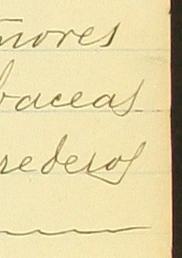 mores
baceas
rederos